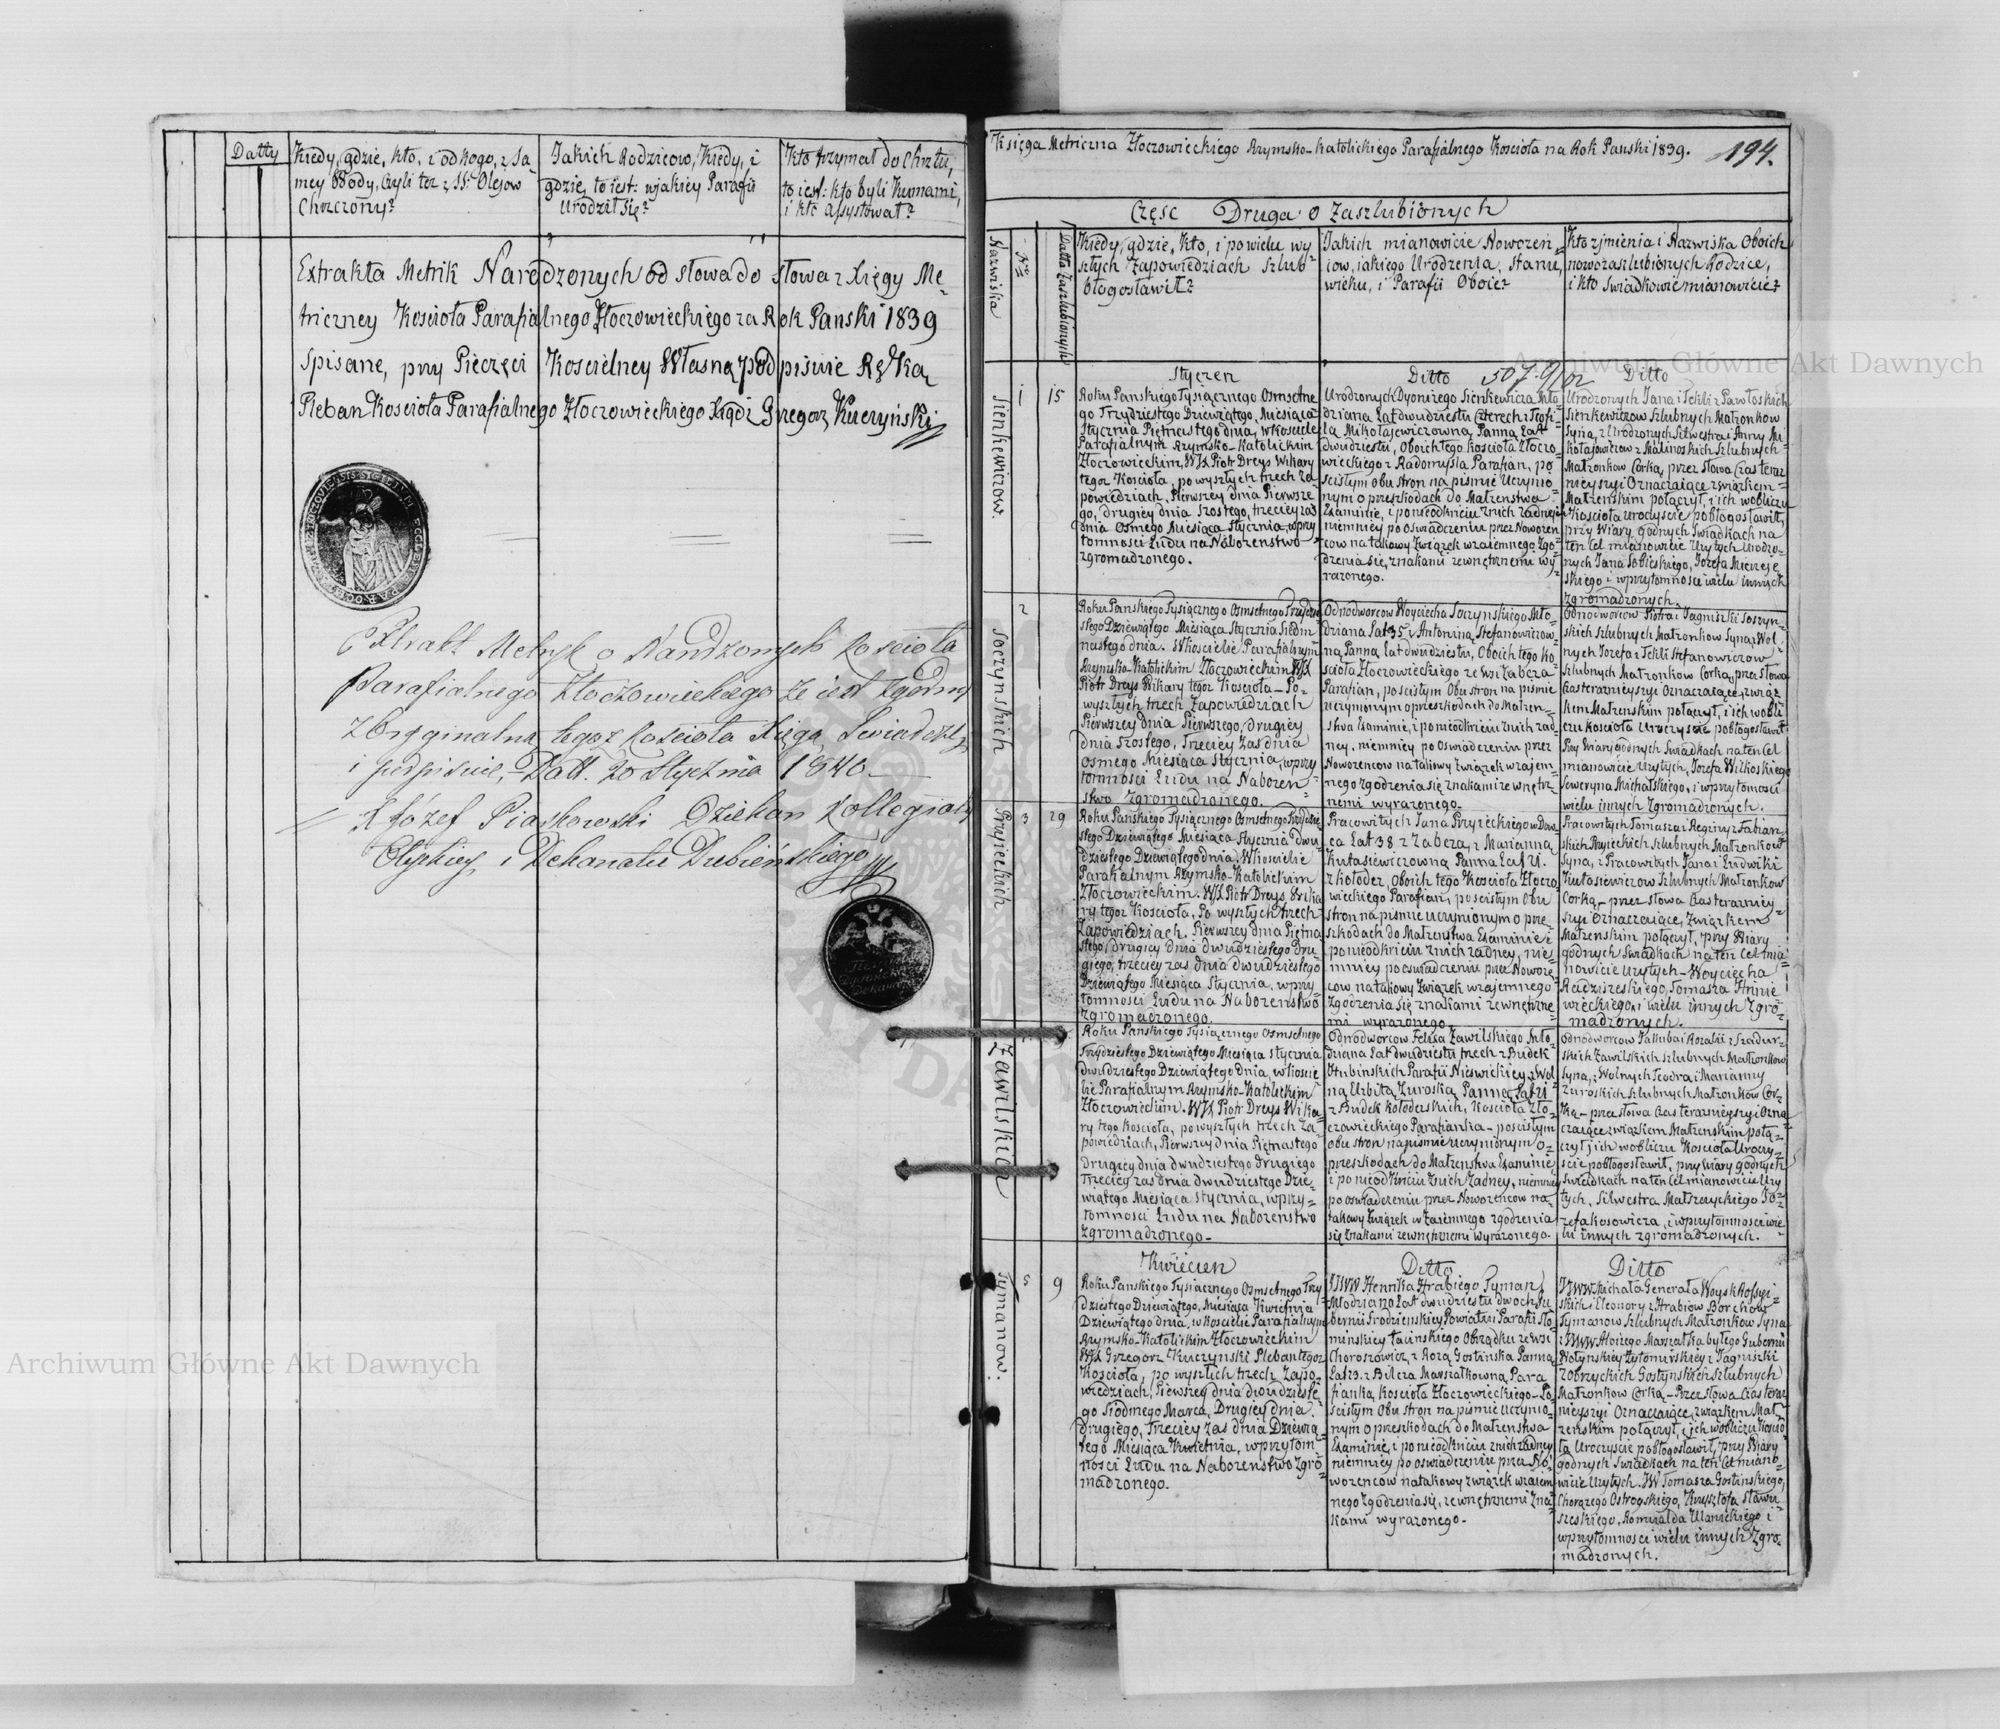 Datty
Kiedy, gdzie, kto, z od kogo, z Sa-
mey Wody, Czyli tez z SS: Olejow
Chrzczony?
Jakich Rodzicow, Kiedy, i
gdzie, to iest: w jakiey Parafii
Urodził się?
Kto trzymał do Chrztu,
to iest: kto byli Kumami,
i kto assystował?
Extrakta Metrik Narodzonych od słowa do słowa z Xięgy Me-
triczney Kosciola Parafialnego Złoczowieckiego za Rok Panski 1839
Spisane, przy Pieczęci Koscielney Własną podpisuie Ręką
Pleban Kosciola Parafialnego Złoczowieckiego Xiądz Grzegorz Kuczyński
Extrakt Metryk o Narodzonych Kosciola
Parafialnego Złoczowieckiego ze iest zgodny
z Oryginalną tegoz Kosciola Xięgą Swiadczy
i podpisuie, Datt. 20 Stycznia 1840.
X Józef Piaskowski Dziekan Kollegiaty
Ołyckiey i Dekanatu Dubieńskiego
Księga Metriczna Złoczowieckiego Rzymsko-Katolickiego Parafialnego Kosciola na Rok Panski 1839.
194.
Częsc Druga o Zaszlubionych
Nazwiska
Nro
Datta Zaszlubionych
Kiedy, gdzie, Kto, i po wielu wy
szłych Zapowiedziach Szlub
błogosławił?
Jakich mianowicie Nowozeń
cow, iakiego Urodzenia, Stanu,
wieku, i Parafii Oboie?
Kto z jmienia i Nazwiska Oboich
nowozaszlubionych Rodzice,
i kto Swiadkowie mianowicie?
Styczen
Ditto
Ditto
Sienkiewiczow.
1
15
Roku Panskiego Tysiącznego Osmsetne
go Trzydziestego Dziewiątego, Miesiąca
Stycznia Piętnastego dnia, w Kosciele
Parafialnym Rzymsko-Katolickim
Złoczowieckim, WJX Piotr Dreys Wikary
tegoz Kosciola, po wyszłych trzech Za
powiedziach, Pierwszey dnia Pierwsze
go, drugiey dnia Szostego, trzeciey zas
dnia Osmego Miesiąca Stycznia, w przy
tomnosci Ludu na Nabozenstwo
zgromadzonego.
Urodzonych Dyonizego Sienkiewicza Mło
dziana Lat dwudziestu Czterech i Teofi
lą Mikołajewiczowną Panną Lat
dwudziestu, Oboich tego Kosciola Złoczo
wieckiego z Radomysla Parafian, po
scisłym Obu stron na pismie Uczynio
nym o przeszkodach do Małzenstwa
Examinie, i po nieodkriciu z nich zadney
niemniey po Oswiadczeniu przez Nowozen
cow na takowy Związek wzaiemnego Zgo
dzenia się, znakami zewnętrznemi wy
razonego.
Urodzonych Jana i Tekli z Pawłoskich
Sienkiewiczow Szlubnych Małzonkow
Syna, z Urodzonych Silwestra i Anny Mi
kołajowiczow z Malinoskich Szlubnych
Małzonkow Corką, przez Słowa Czas teraz
nieyszy Oznaczaiące związkiem
Małzenskim połączył, i ich w obliczu
Kosciola Uroczyscie pobłogosławił,
przy Wiary godnych Swiadkach na
ten Cel mianowicie Uzytych Urodzo
nych Jana Sobieskiego, Jozefa Mierzeje
skiego i w przytomnosci wielu innych
zgromadzonych.
2
Soczynskich
Roku Panskiego Tysiącznego Osmsetnego Trzydzie
stego Dziewiątego Miesiąca Stycznia Siedm
nastego dnia. W Kosciele Parafialnym
Rzymsko Katolickim Złoczowieckim WJX
Piotr Dreys Wikary tegoz Kosciola Po
wyszłych trzech Zapowiedziach
Pierwszey dnia Pierwszego, drugiey
dnia Szostego, Trzeciey Zas dnia
Osmego Miesiąca Stycznia, w przy
tomnosci Ludu na Nabozen
stwo Zgromadzonego.
Odnodworcow Woyciecha Soczynskiego Mło
dziana Lat 35 i Antoniną Stefanowiczow
ną Panną Lat dwudziestu, Oboich tego Ko
sciola Złoczowieckiego ze Wsi Zabcza
Parafian, po scisłym Obu stron na pismie
uczynionym o przeszkodach do Małzen
stwa Examinie, i po nieodkriciu z nich zad
ney, niemniey po Oswiadczeniu przez
Nowozencow na takowy Związek wzaiem
nego zgodzenia się znakami zewnętrz
nemi wyrazonego.
Odnodworcow Piotra i Jagniszki Soczyn
skich Szlubnych Małzonkow Syna, z Wol
nych Jozefa i Tekli Stefanowiczow
Szlubnych Małzonkow Corką, przez Słowa
Czas teraznieyszy Oznaczaiące, związ
kiem Małzenskim połączył, i ich w obli
czu Kosciola Uroczyscie pobłogosławił
Przy Wiary godnych Swiadkach na ten Cel
mianowicie Uzytych, Jozefa Wilkoskiego
Seweryna Michalskiego, i w przytomosci
wielu innych Zgromadzonych.
3
29
Przyjeckich
Roku Panskiego Tysiącznego Osmsetnego Trzydzie
stego Dziewiątego Miesiąca Stycznia dwu
dziestego Dziewiątego dnia. W Kosciele
Parafialnym Rzymsko-Katolickim
Złoczowieckim. WJX Piotr Dreys Wika
ry tegoz Kosciola, Po wyszłych trzech
Zapowiedziach. Pierwszey dnia Piętna
stego, drugiey dnia dwudziestego Dru
giego, trzeciey zas dnia dwudziestego
Dziewiątego Miesiąca Stycznia, w przy
tomnosci Ludu na Nabozenstwo
Zgromadzonego.
Pracowitych Jana Przyieckiego Wdow
ca Lat 38 z Zabcza, z Marianną
Kutasiewiczowną Panną Lat 21.
z Kołodez, Oboich tego Kosciola Złoczo
wieckiego Parafian, po scisłym Obu
stron na pismie uczynionym o prze
szkodach do Małzenstwa Examinie i
po nieodkriciu z nich zadney, nie
mniey po oswiadczeniu przez Nowoze
cow na takowy Związek wzaiemnego
Zgodzenia się znakami zewnętrzne
mi wyrazonego.
Pracowitych Tomasza i Reginy z Fabian
skich Przyieckich Szlubnych Małzonkow
Syna, z Pracowitych Jana i Ludwiki
Kutasiewiczow Szlubnych Małzonkow
Corką, przez słowa Czas terazniey
szy Oznaczaiące, Związkiem
Małzenskim połączył, przy Wiary
godnych Swiadkach na ten Cel mia
nowicie Uzytych Woyciecha
Radziszeskiego, Tomasza Hnie
wieckiego, i wielu innych Zgro
madzonych.
Zawilskich
Roku Panskiego Tysiącznego Osmsetnego
Trzydziestego Dziewiątego Miesiąca Stycznia
dwudziestego Dziewiątego dnia, w Kosciele
Parafialnym Rzymsko-Katolickim
Złoczowieckim. WJX Piotr Dreys Wika
ry tego Kosciola, po wyszłych trzech Za
powiedziach, Pierwszey dnia Piętnastego
drugiey dnia dwudziestego drugiego
Trzeciey zas dnia dwudziestego Dzie
wiątego Miesiąca Stycznia, w przy
tomnosci Ludu na Nabozenstwo
zgromadzonego.
Odnodworcow Felixa Zawilskiego Mło
dziana Lat dwudziestu trzech z Budek
Hubinskich Parafii Nieswickiey, z Wol
ną Elzbietą Zuroską Panną Lat 21
z Budek Kołodezskich, Kosciola Zło
czowieckiego Parafianką, po scisłym
obu stron na pismie uczynionym o
przeszkodach do Małzenstwa Examinie
i po nieodkriciu z nich Zadney, niemniey
po oswiadczeniu przez Nowozencow na
takowy Związek wzaiemnego zgodzenia
się Znakami zewnętrznemi wyrazonego.
Odnodworcow Jakuba i Rozalii z Szadur
skich Zawilskich Szlubnych Małzonkow
Syna, z Wolnych Teodora i Marianny
Zuroskich Szlubnych Małzonkow Cor
ką, przez słowa Czas teraznieyszy Ozna
czaiące związkiem Małzenskim połą
czył, ich w obliczu Kosciola Uroczy
scie pobłogosławił, przy Wiary godnych
Swiadkach na ten Cel mianowicie Uzy
tych, Silwestra Małszeyckiego Jo
zefa Kosowicza, i w przytomnosci wie
lu innych zgromadzonych.
Kwiecien
Ditto
Ditto
Tymanow.
5
9
Roku Panskiego Tysiącznego Osmsetnego Trzy
dziestego Dziewiątego, Miesiąca Kwietnia
Dziewiątego dnia, w Kosciele Parafialnym
Rzymsko-Katolickim Złoczowieckim
WJX Grzegorz Kuczynski Pleban tegoz
Kosciola, po wyszłych trzech Zapo
wiedziach, Pierwszey dnia dwudzieste
go Siodmego Marca, Drugiey dnia
drugiego, Trzeciey Zas dnia Dziewią
tego Miesiąca Kwietnia, w przytom
nosci Ludu na Nabozenstwo Zgro
madzonego.
JWW Henrika Hrabiego Tyman
Młodziana Lat dwudziestu dwoch, Gu
bernii Grodzienskiey Powiatu i Parafii Sło
minskiey Łacinskiego Obrządku ze wsi
Choroszowicz, z Rozą Gostinską Panną
Lat 23. z Bilcza Marszałkowną, Para
fianką Kosciola Złoczowieckiego Po
scisłym Obu stron na pismie Uczynio
nym o przeszkodach do Małzenstwa
Examinie, i po nieodkriciu z nich zadney
niemniey po oswiadczeniu przez No
wozencow na takowy związek wzaiem
nego Zgodzenia się, zewnętrznemi Zna
kami wyrazonego.
JWW Michała Generała Woysk Rossyi
skich i Eleonory z Hrabiow Borchow
Tymanow Szlubnych Małzonkow Syna
z JWW Aloizego Marszałka byłego Gubernii
Wołynskiey Zytomirskiey i Jagniszki
Zobryckich Gostynskich Szlubnych
Małzonkow Corką, Przez Słowa Czas teraz
nieyszy Oznaczaiące, związkiem Mał
zenskim połączył, i ich w obliczu Koscio
ła Uroczyscie pobłogosławił, przy Wiary
godnych Swiadkach na ten Cel miano
wicie Uzytych. JW Tomasza Gostinskiego,
Chorązego Ostrogskiego, Krzysztofa Stawi
szeskiego, Romualda Ulanickiego i
w przytomnosci wielu innych Zgro
madzonych.
Archiwum Główne Akt Dawnych
Archiwum Główne Akt Dawnych